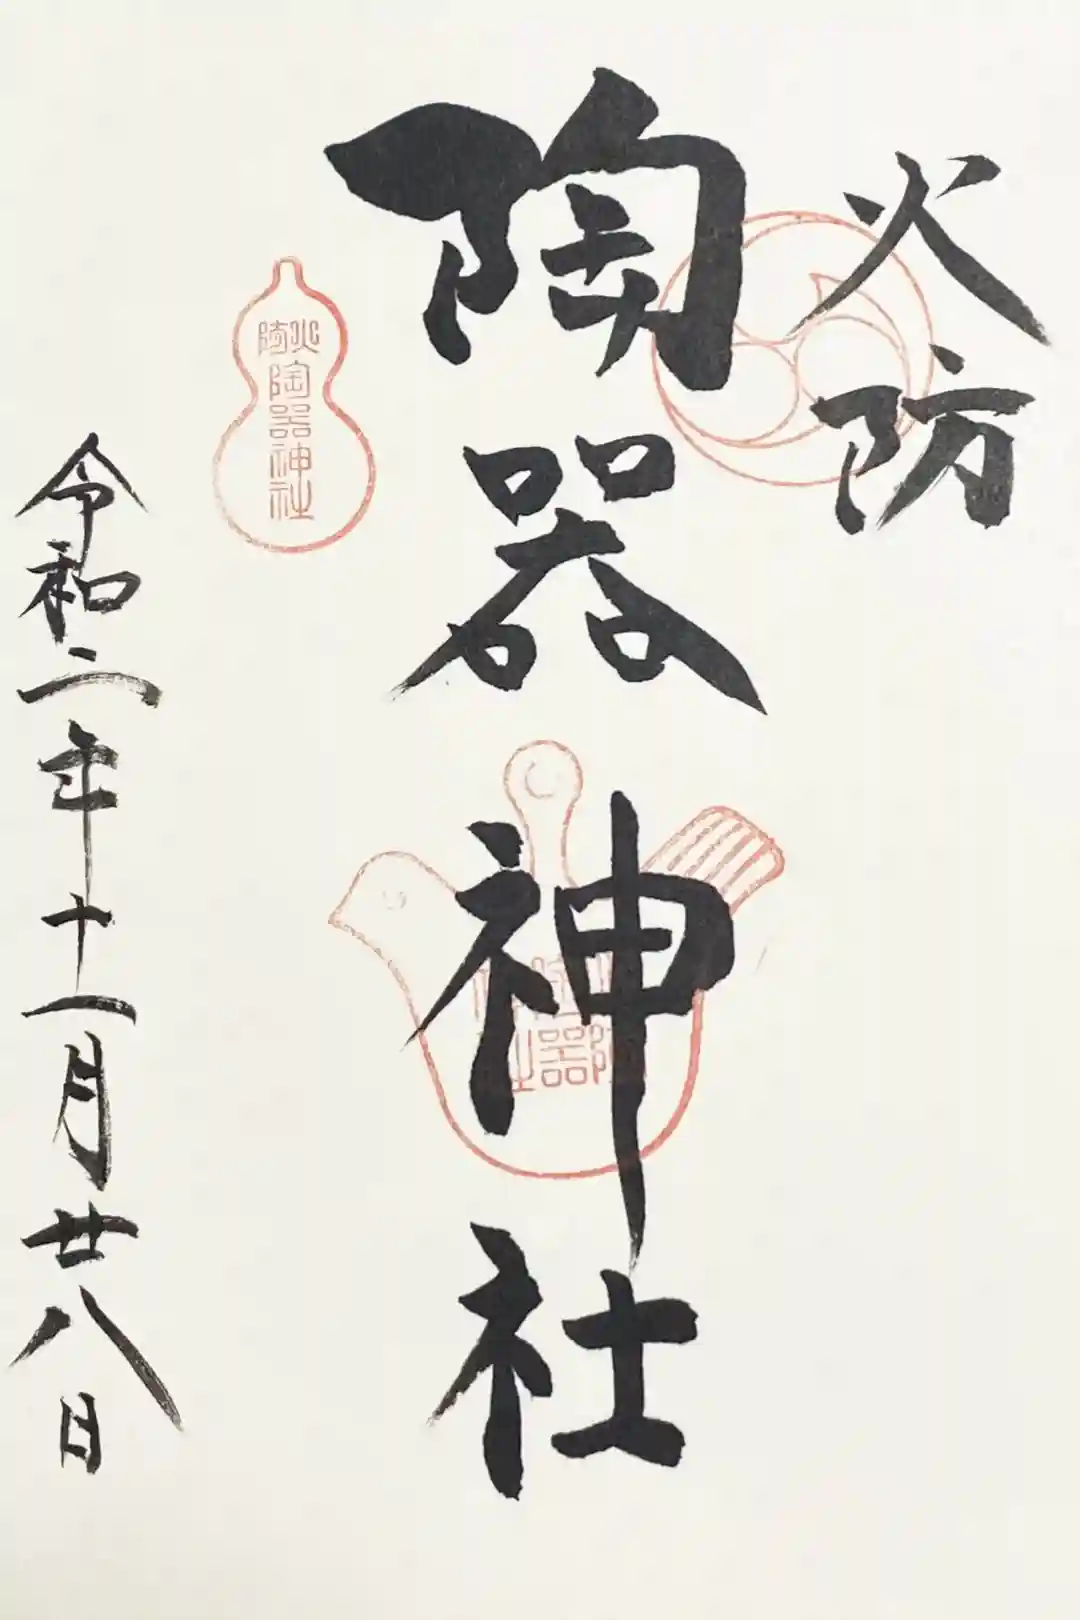 火防
陶器神社
火防陶器神社
陶器神社
令和二年十一月廿八日